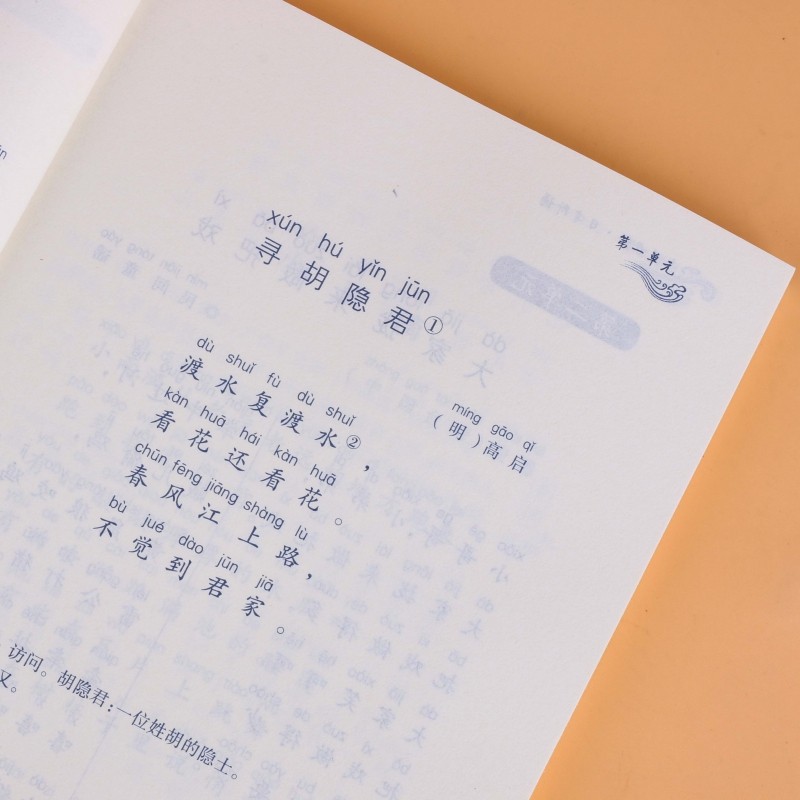 第一单元
xún hú yǐn jūn
寻胡隐君①
míng gāo qǐ
（明）高启
dù shuǐ fù dù shuǐ
渡水复渡水②，
kàn huā hái kàn huā
看花还看花。
chūn fēng jiāng shàng lù
春风江上路，
bù jué dào jūn jiā
不觉到君家。
访问。胡隐君：一位姓胡的隐士。
又。